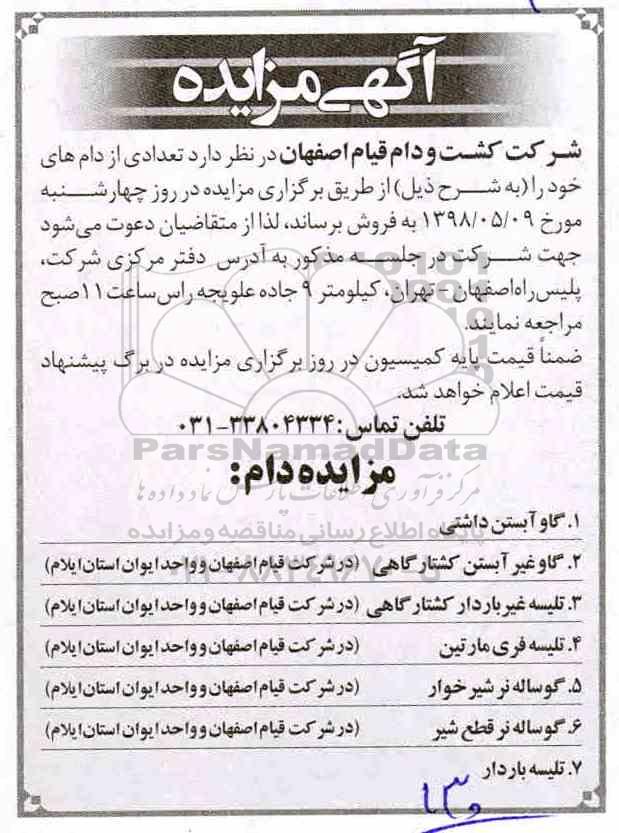 آگهی مزایده
شرکت کشت و دام قیام اصفهان در نظر دارد تعدادی از دام های
خود را (به شرح ذیل) از طریق برگزاری مزایده در روز چهارشنبه
مورخ ۱۳۹۸/۰۵/۰۹ به فروش برساند، لذا از متقاضیان دعوت می‌شود
جهت شرکت در جلسه مذکور به آدرس دفتر مرکزی شرکت،
پلیس راه اصفهان - تهران، کیلومتر ۹ جاده علویجه راس ساعت ۱۱ صبح
مراجعه نمایند.
ضمناً قیمت پایه کمیسیون در روز برگزاری مزایده در برگ پیشنهاد
قیمت اعلام خواهد شد.
تلفن تماس: ۳۳۸۰۴۳۳۴-۰۳۱
ParsNamadData
مزایده دام:
مرکز فرآوری اطلاعات پارس نماد داده ها
۱. گاو آبستن داشتی
پایگاه اطلاع رسانی مناقصه و مزایده
۲. گاو غیر آبستن کشتارگاهی (در شرکت قیام اصفهان و واحد ایوان استان ایلام)
۳. تلیسه غیر باردار کشتارگاهی (در شرکت قیام اصفهان و واحد ایوان استان ایلام)
۴. تلیسه فری مارتین (در شرکت قیام اصفهان و واحد ایوان استان ایلام)
۵. گوساله نر شیر خوار (در شرکت قیام اصفهان و واحد ایوان استان ایلام)
۶. گوساله نر قطع شیر (در شرکت قیام اصفهان و واحد ایوان استان ایلام)
۷. تلیسه باردار